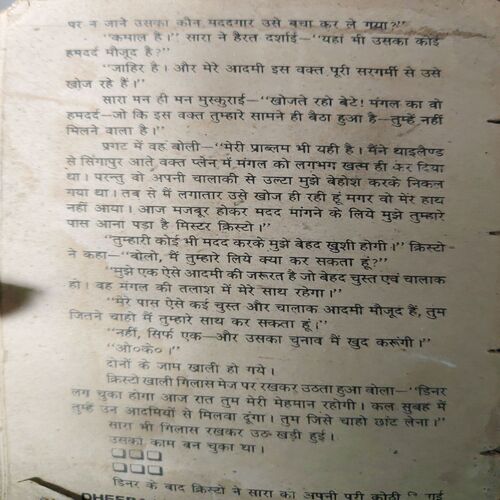 पर न जाने उसका कौन मददगार उसे बचा कर ले गया?"
"कमाल है।" सारा ने हैरत दर्शाई—"यहां भी उसका कोई
हमदर्द मौजूद है?"
"जाहिर है। और मेरे आदमी इस वक्त पूरी सरगर्मी से उसे
खोज रहे हैं।"
सारा मन ही मन मुस्कुराई—"खोजते रहो बेटे! मंगल का वो
हमदर्द—जो कि इस वक्त तुम्हारे सामने ही बैठा हुआ है—तुम्हें नहीं
मिलने वाला है।"
प्रगट में वह बोली—"मेरी प्राब्लम भी यही है। मैंने थाइलैण्ड
से सिंगापुर आते वक्त प्लेन में मंगल को लगभग खत्म ही कर दिया
था। परन्तु वो अपनी चालाकी से उल्टा मुझे बेहोश करके निकल
गया था। तब से मैं लगातार उसे खोज ही रही हूं मगर वो मेरे हाथ
नहीं आया। आज मजबूर होकर मदद मांगने के लिये मुझे तुम्हारे
पास आना पड़ा है मिस्टर क्रिस्टो।"
"तुम्हारी कोई भी मदद करके मुझे बेहद खुशी होगी।" क्रिस्टो
ने कहा—"बोलो, मैं तुम्हारे लिये क्या कर सकता हूं?"
"मुझे एक ऐसे आदमी की जरूरत है जो बेहद चुस्त एवं चालाक
हो। वह मंगल की तलाश में मेरे साथ रहेगा।"
"मेरे पास ऐसे कई चुस्त और चालाक आदमी मौजूद हैं, तुम
जितने चाहो मैं तुम्हारे साथ कर सकता हूं।"
"नहीं, सिर्फ एक—और उसका चुनाव मैं खुद करूंगी।"
"ओ०के०।"
दोनों के जाम खाली हो गये।
क्रिस्टो खाली गिलास मेज पर रखकर उठता हुआ बोला—"डिनर
लग चुका होगा आज रात तुम मेरी मेहमान रहोगी। कल सुबह में
तुम्हें उन आदमियों से मिलवा दूंगा। तुम जिसे चाहो छांट लेना।"
सारा भी गिलास रखकर उठ खड़ी हुई।
उसका काम बन चुका था।
डिनर के बाद क्रिस्टो ने सारा को अपनी पूरी कोठी